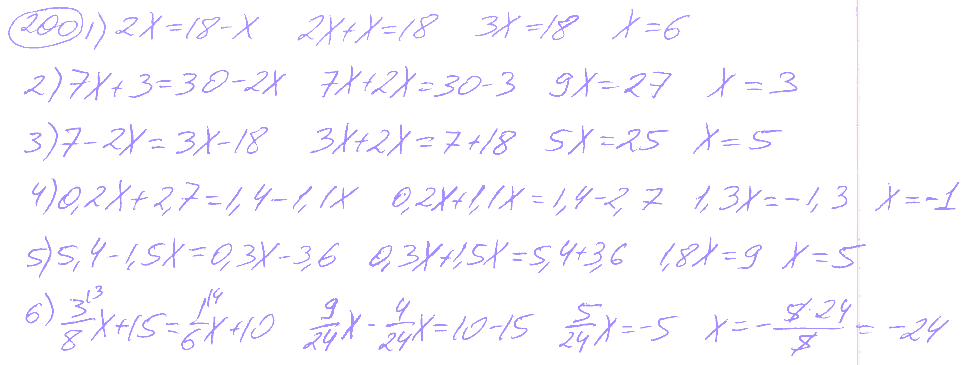 200 1) 2x=18-x 2x+x=18 3x=18 x=6
2) 7x+3=30-2x 7x+2x=30-3 9x=27 x=3
3) 7-2x=3x-18 3x+2x=7+18 5x=25 x=5
4) 0,2x+2,7=1,4-1,1x 0,2x+1,1x=1,4-2,7 1,3x=-1,3 x=-1
5) 5,4-1,5x=0,3x-3,6 0,3x+1,5x=5,4+3,6 1,8x=9 x=5
6) 3\3/8x+15=1\4/6x+10 9/24x-4/24x=10-15 5/24x=-5 x=-5·24/5=-24